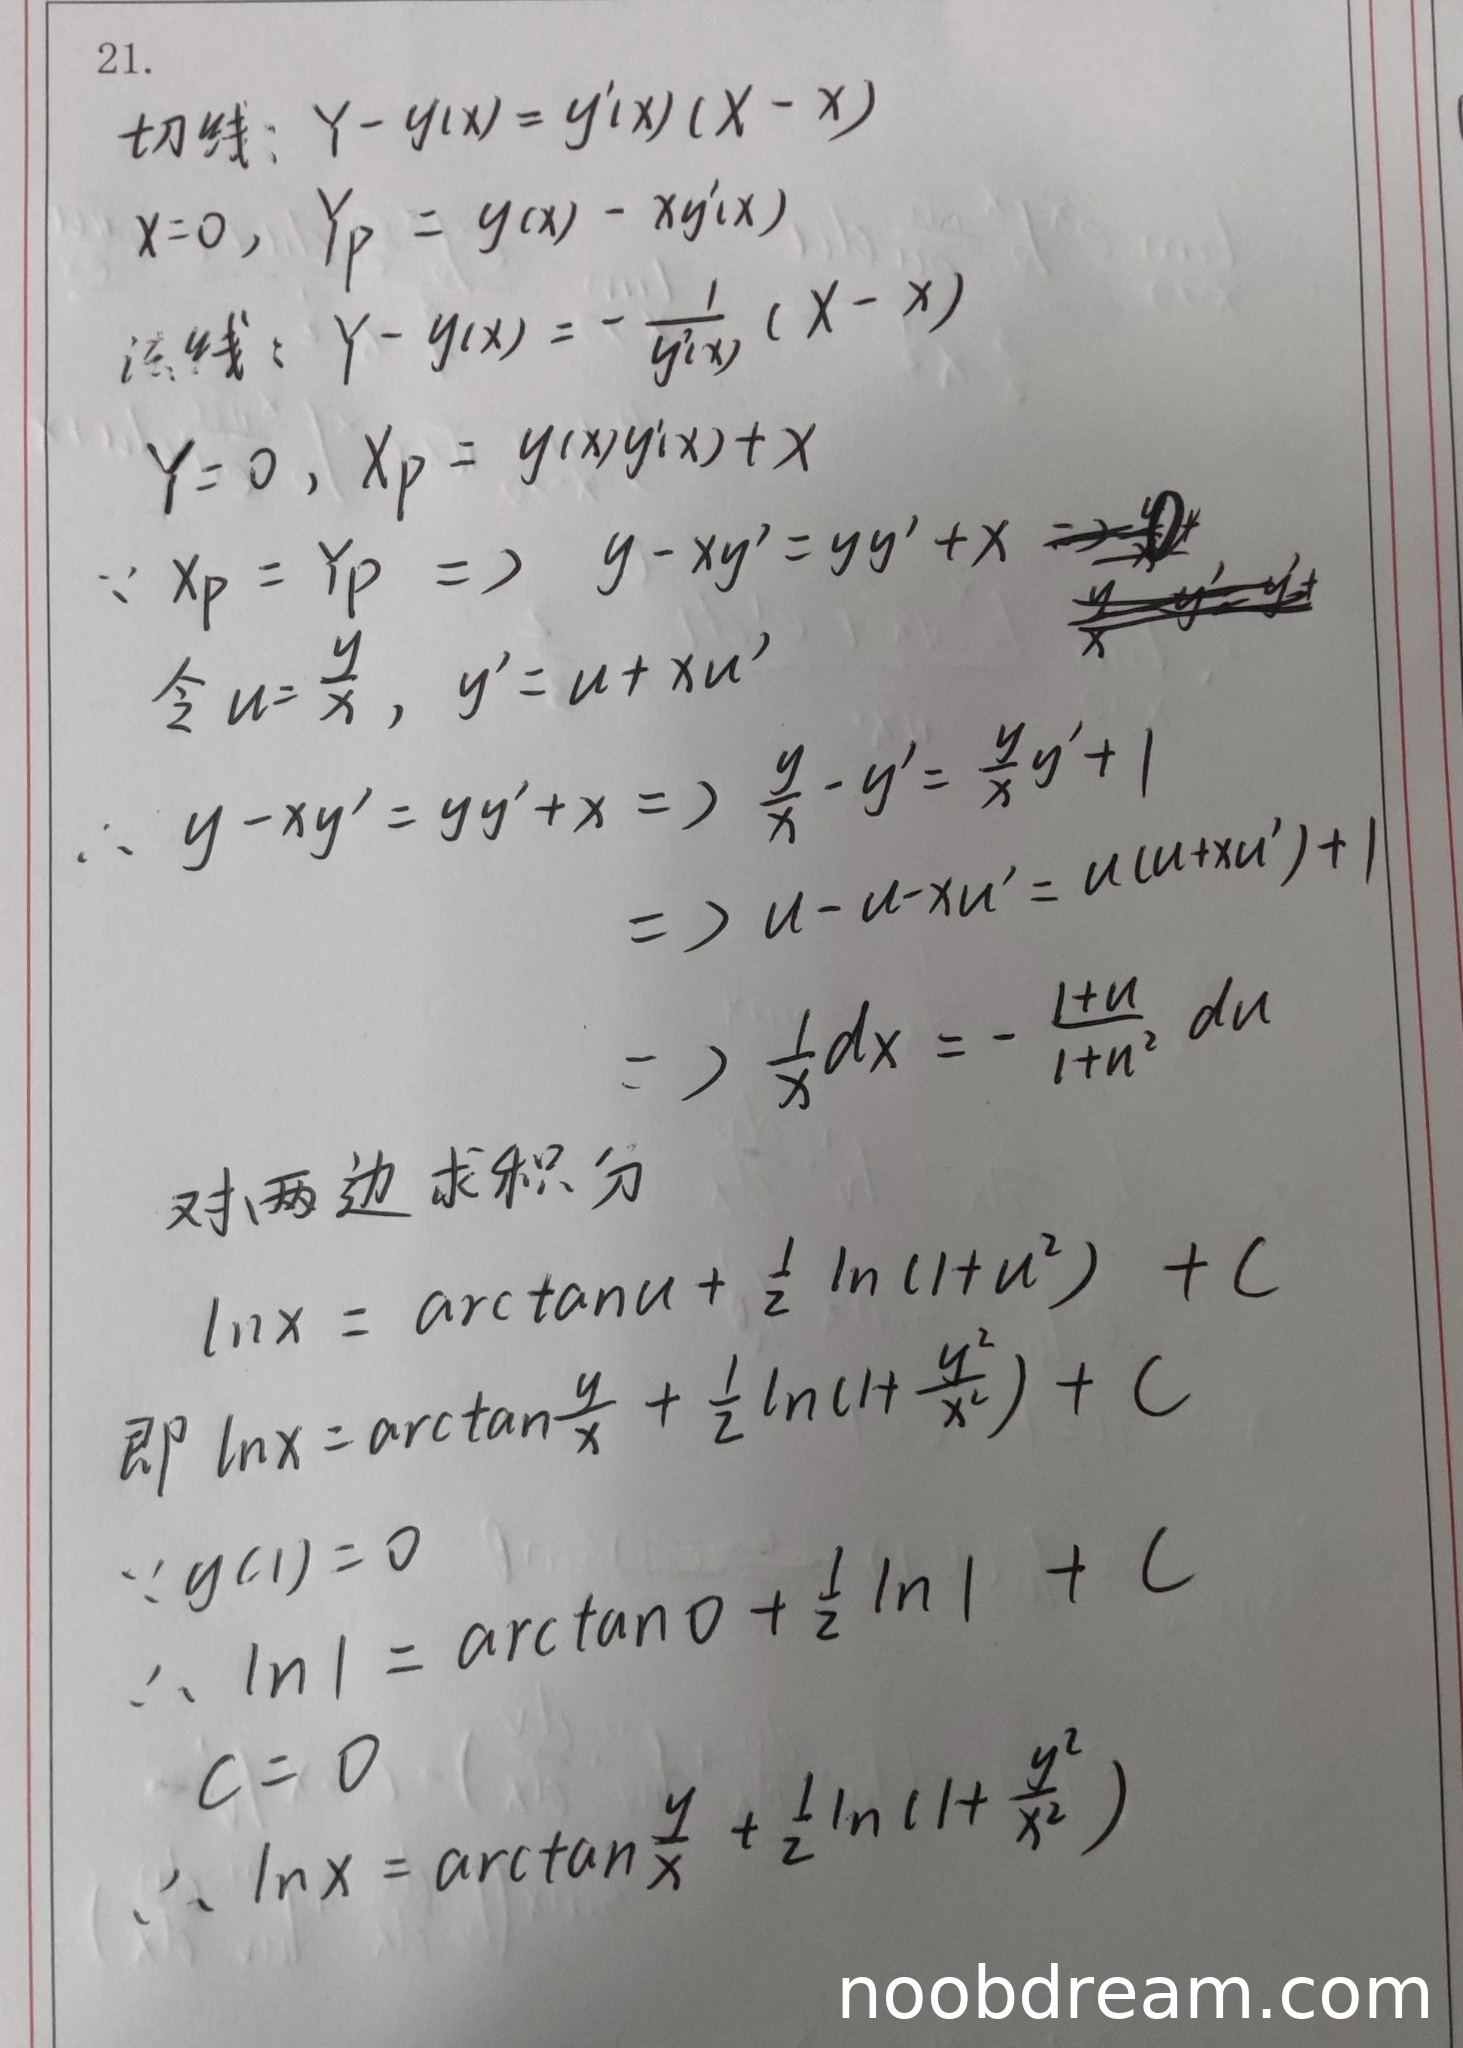 21.
切线: Y - y(x) = y'(x) (X - x)
x=0, Yp = y(x) - xy'(x)
法线: Y - y(x) = - 1/y'(x) (X - x)
Y=0, Xp = y(x)y'(x) + x
∵ Xp = Yp => y - xy' = yy' + x
令 u = y/x, y' = u + xu'
∴ y - xy' = yy' + x => y/x - y' = y/x y' + 1
=> u - u - xu' = u(u+xu') + 1
=> 1/x dx = - (1+u)/(1+u²) du
对两边求积分
lnx = arctanu + 1/2 ln(1+u²) + C
即 lnx = arctan y/x + 1/2 ln(1+ y²/x²) + C
∵ y(1) = 0
∴ ln1 = arctan0 + 1/2 ln1 + C
C = 0
∴ lnx = arctan y/x + 1/2 ln(1+ y²/x²)
noobdream.com